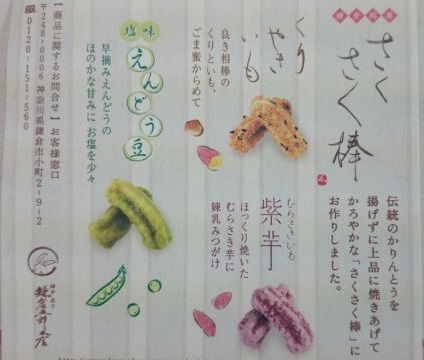 さくさく棒
伝統のかりんとうを
揚げずに上品に焼きあげて
かろやかな「さくさく棒」に
お作りしました。
くり
やき
いも
良き相棒の
くりといも、
ごま蜜からめて
むらさきいも
紫芋
ほっくり焼いた
むらさき芋に
練乳みつがけ
塩味
えんどう豆
早摘みえんどうの
ほのかな甘みに お塩を少々
【商品に関するお問合せ】お客様窓口
〒248-0006 神奈川県鎌倉市小町2-9-2
0120-151-560
鎌倉五郎本店